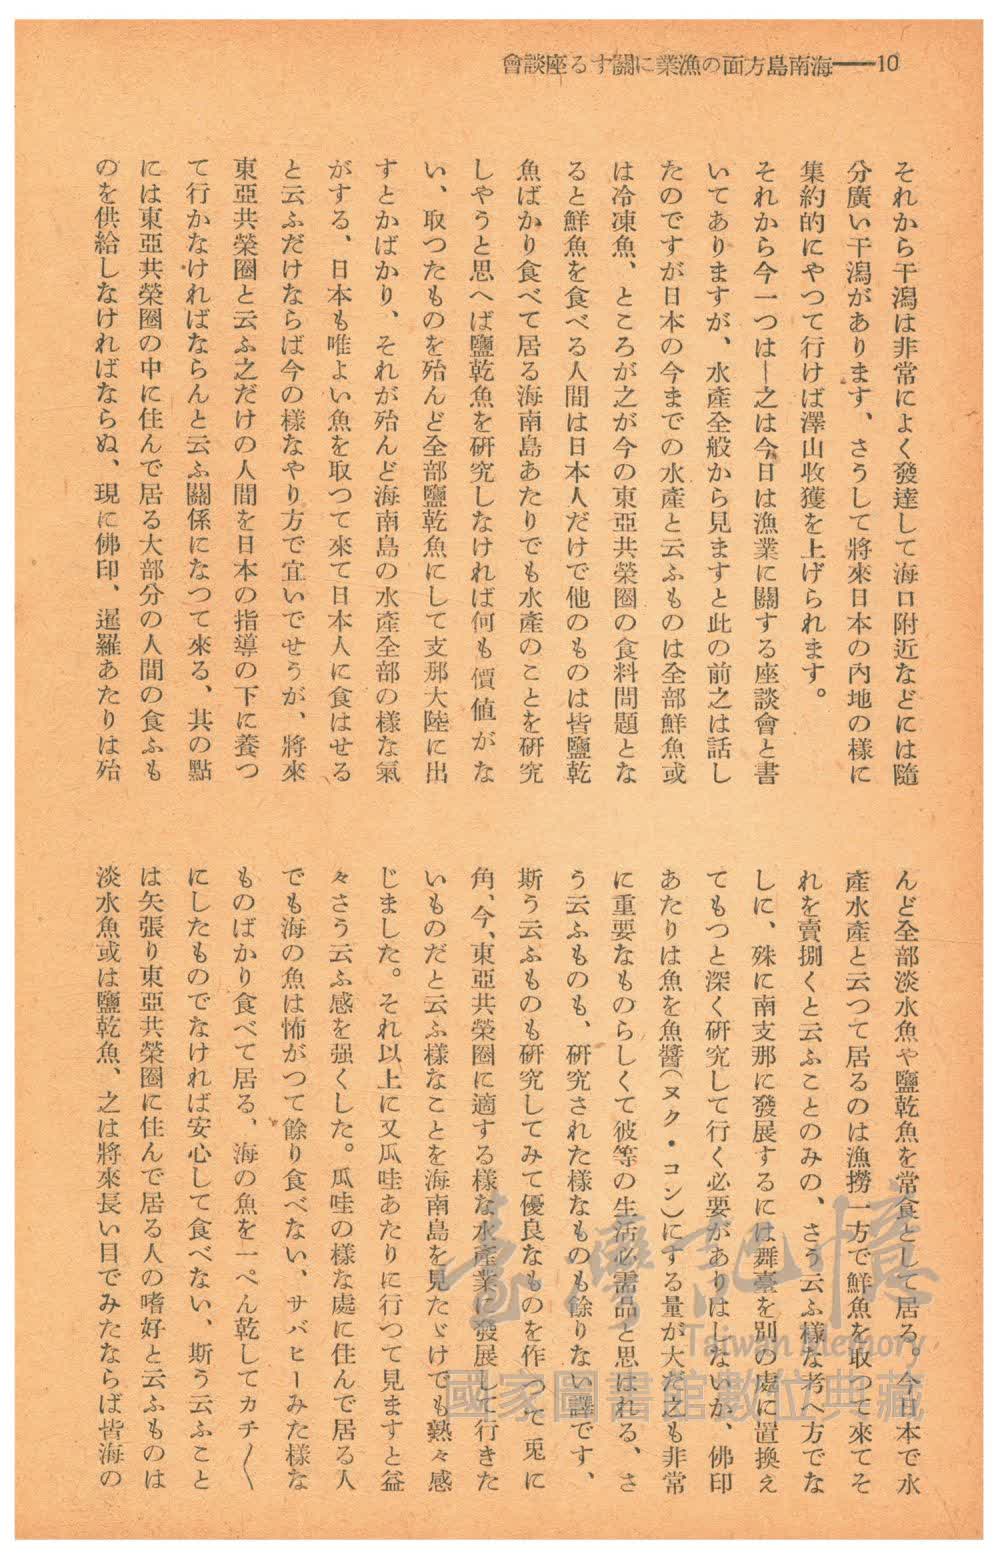 會談座るす關に業漁の面方島南海――10
それから干潟は非常によく發達して海口附近などには隨
分廣い干潟があります、さうして將來日本の內地の樣に
集約的にやつて行けば澤山收獲を上げられます。
それから今一つは―之は今日は漁業に關する座談會と書
いてありますが、水產全般から見ますと此の前之は話し
たのですが日本の今までの水產と云ふものは全部鮮魚或
は冷凍魚、ところが之が今の東亞共榮圈の食料問題とな
ると鮮魚を食べる人間は日本人だけで他のものは皆鹽乾
魚ばかり食べて居る海南島あたりでも水產のことを硏究
しやうと思へば鹽乾魚を硏究しなければ何も價値がな
い、取つたものを殆んど全部鹽乾魚にして支那大陸に出
すとかばかり、それが殆んど海南島の水產全部の樣な氣
がする、日本も唯よい魚を取つて來て日本人に食はせる
と云ふだけならば今の樣なやり方で宜いでせうが、將來
東亞共榮圈と云ふ之だけの人間を日本の指導の下に養つ
て行かなければならんと云ふ關係になつて來る、其の點
には東亞共榮圈の中に住んで居る大部分の人間の食ふも
のを供給しなければならぬ、現に佛印、暹羅あたりは殆
んど全部淡水魚や鹽乾魚を常食として居る。今日本で水
產水產と云つて居るのは漁撈一方で鮮魚を取つて來てそ
れを賣捌くと云ふことのみの、さう云ふ樣な考へ方でな
しに、殊に南支那に發展するには舞臺を別の處に置換え
てもつと深く硏究して行く必要がありはしないか、佛印
あたりは魚を魚醬(ヌク・コン)にする量が大だ之も非常
に重要なものらしくて彼等の生活必需品と思はれる、さ
う云ふものも、硏究された樣なものも餘りない譯です、
斯う云ふものも硏究してみて優良なものを作つて兎に
角、今、東亞共榮圈に適する樣な水產業に發展して行きた
いものだと云ふ樣なことを海南島を見たゞけでも熟々感
じました。それ以上に又瓜哇あたりに行つて見ますと益
々さう云ふ感を强くした。瓜哇の樣な處に住んで居る人
でも海の魚は怖がつて餘り食べない、サバヒーみた樣な
ものばかり食べて居る、海の魚を一ぺん乾してカチ〳〵
にしたものでなければ安心して食べない、斯う云ふこと
は矢張り東亞共榮圈に住んで居る人の嗜好と云ふものは
淡水魚或は鹽乾魚、之は將來長い目でみたならば皆海の
臺灣記憶
Taiwan Memory
國家圖書館數位典藏